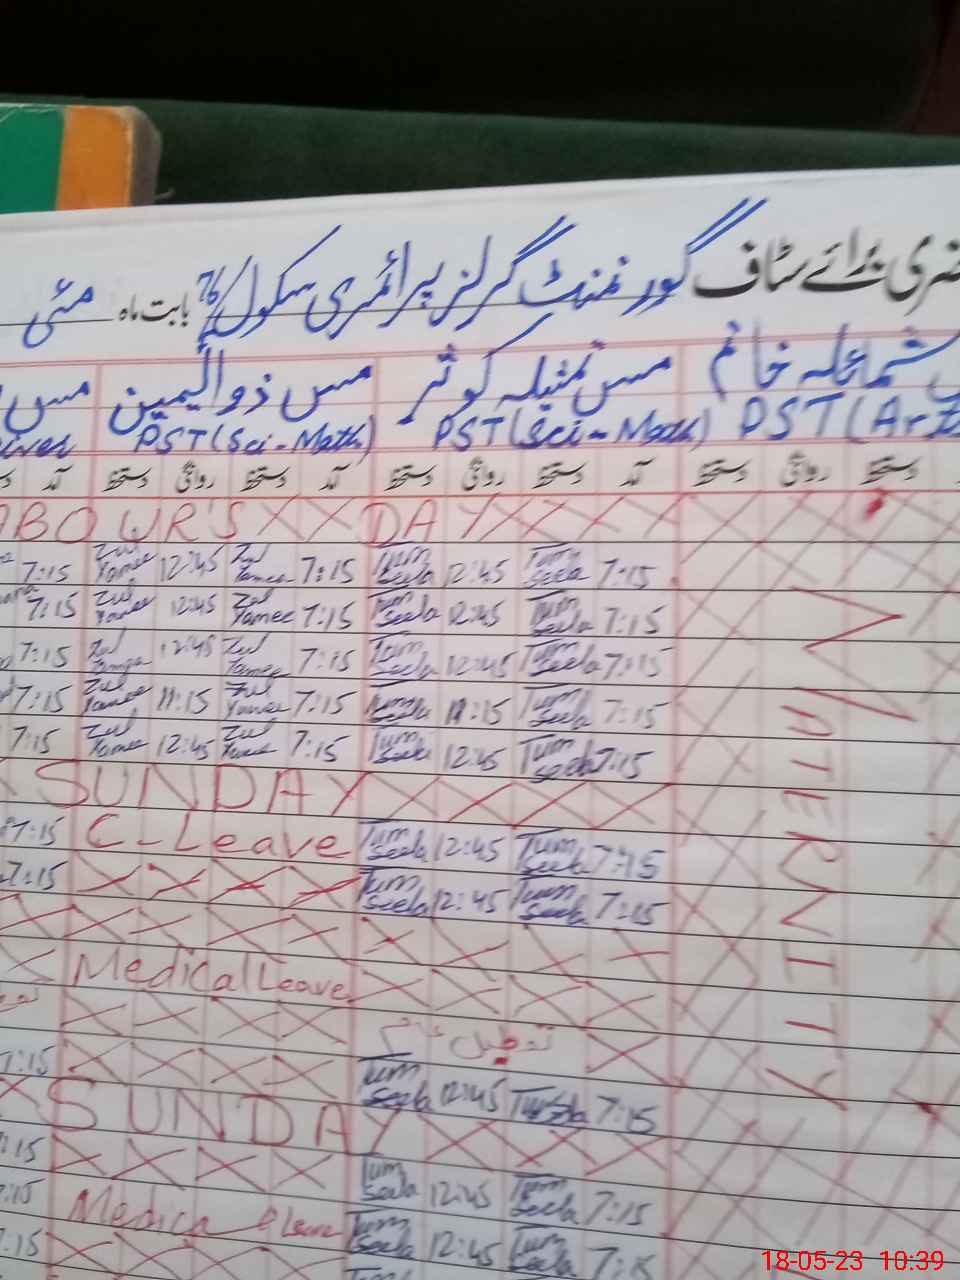 برائے سٹاف گورنمنٹ گرلز پرائمری سکول 76/ بابت ماہ مئی
شمائلہ خانم مس تمثیلہ کوثر مس ذوالیمین مس
PST (Sci-Math) PST (Sci-Math) PST (Art
آمد دستخط روانگی دستخط آمد دستخط روانگی دستخط دستخط روانگی دستخط
ABOUR'S DAY
7:15 Zul Yamee 12:45 Zul Yamee 7:15 Tum Seela 12:45 Tum Seela 7:15
7:15 Zul Yamee 12:45 Zul Yamee 7:15 Tum Seela 12:45 Tum Seela 7:15
7:15 Zul Yamee 12:45 Zul Yamee 7:15 Tum Seela 12:45 Tum Seela 7:15
7:15 Zul Yamee 11:15 Zul Yamee 7:15 Tum Seela 11:15 Tum Seela 7:15
7:15 Zul Yamee 12:45 Zul Yamee 7:15 Tum Seela 12:45 Tum Seela 7:15
SUNDAY
7:15 C-Leave Tum Seela 12:45 Tum Seela 7:15
7:15 Tum Seela 12:45 Tum Seela 7:15
Medical Leave
تعطیل عام
7:15 Tum Seela 12:45 Tum Seela 7:15
SUNDAY
7:15 Tum Seela 12:45 Tum Seela 7:15
7:15 Medical Leave Tum Seela 12:45 Tum Seela 7:15
7:15
MATERNITY
18-05-23 10:39